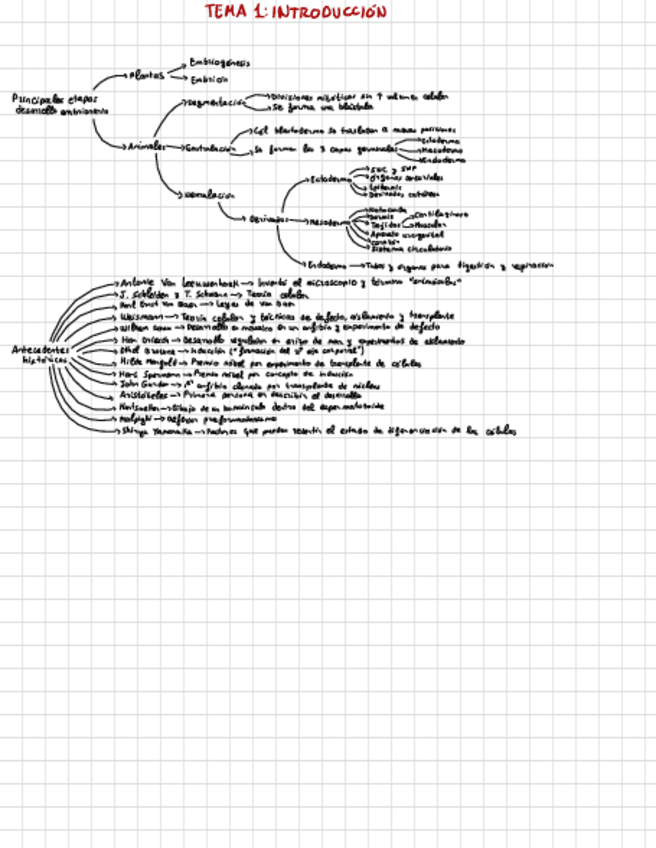 TEMA 1: INTRODUCCIÓN
Embriogénesis
Plantas
Embrión
Principales etapas
desarrollo embrionario
Divisiones mitóticas sin ↑ volumen celular
Segmentación
Se forma una blástula
Cél blastodermo se trasladan a nuevas posiciones
Animales
Gastrulación
Se forman las 3 capas germinales
Ectodermo
Mesodermo
Endodermo
SNC y SNP
Ectodermo
Órganos sensoriales
Epidermis
Derivados cutáneos
Derivados
Mesodermo
Notocorda
Dermis
Tejidos
Cartilaginoso
Muscular
Aparato urogenital
Corazón
Sistema circulatorio
Endodermo → Tubos y órganos para digestión y respiración
Antonie Van Leeuwenhoek → Inventó el microscopio y término "animículos"
J. Schleiden y T. Schwann → Teoría celular
Karl Ernst Von Baer → Leyes de Von Baer
Weismann → Teoría celular y técnicas de defecto, aislamiento y transplante
Wilhem Roux → Desarrollo en mosaico en un anfibio y experimento de defecto
Han Driesch → Desarrollo regulador en erizo de mar y experimentos de aislamiento
Antecedentes
históricos
Ethel Browne → Inducción ("formación del 2º eje corporal")
Hilde Mangold → Premio nobel por experimento de transplante de células
Hans Spemann → Premio nobel por concepto de inducción
John Gurdon → 1er anfibio clonado por transplante de núcleos
Aristóteles → Primera persona en describir el desarrollo
Hartsoeker → Dibujo de un homúnculo dentro del espermatozoide
Malpighi → Defensor preformacionismo
Shinya Yamanaka → Factores que pueden revertir el estado de diferenciación de las células